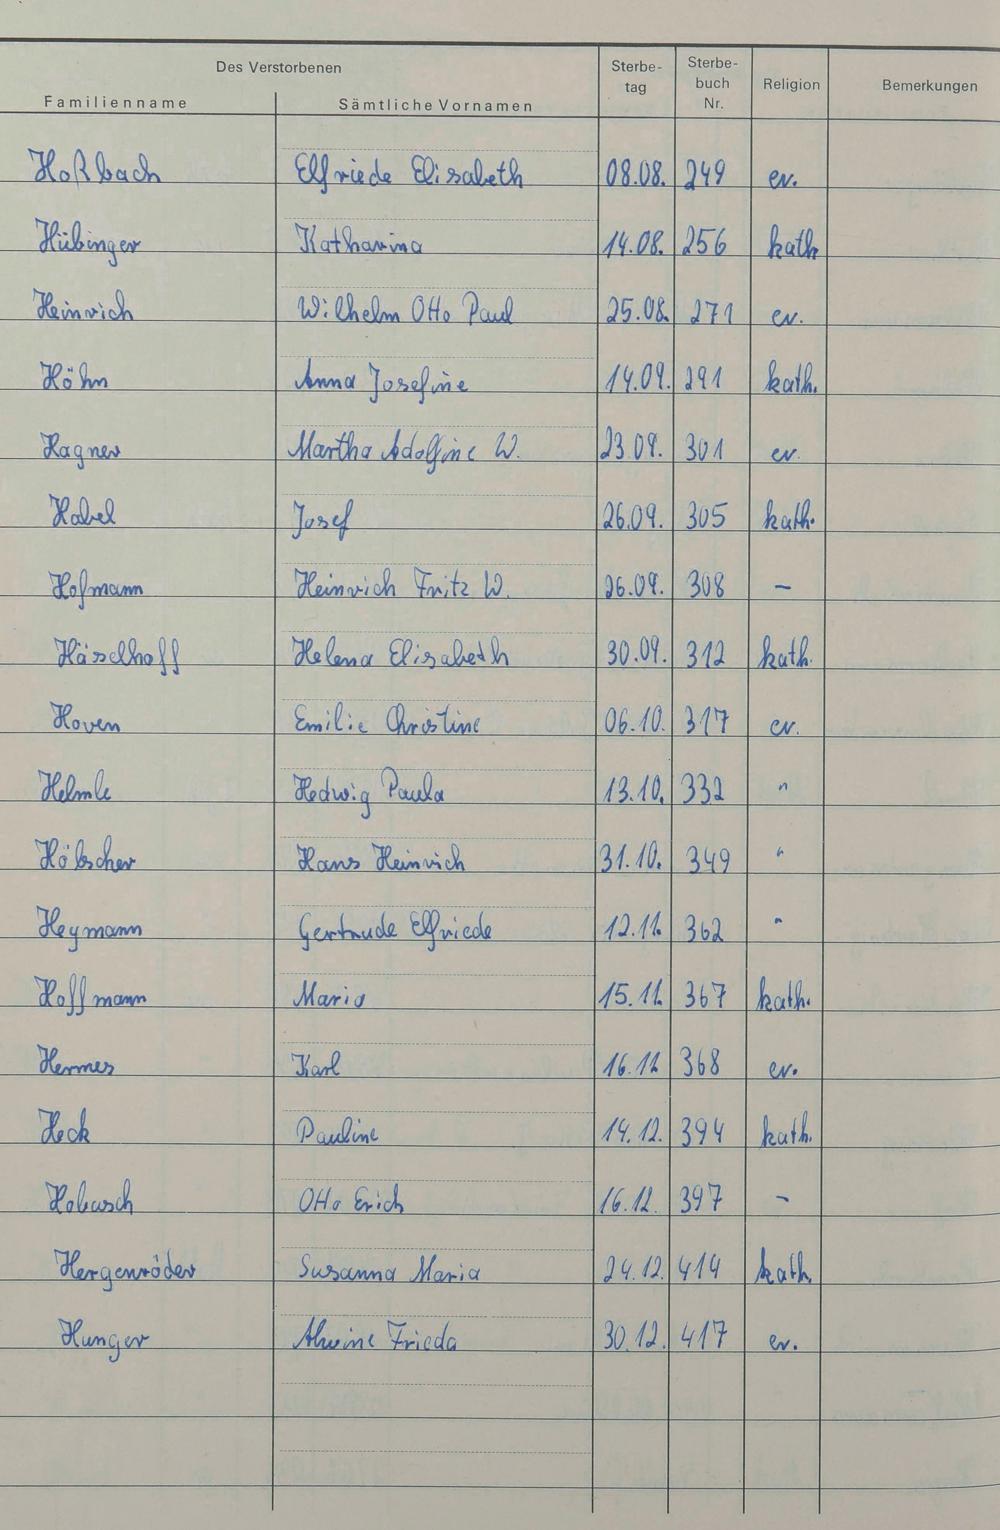 Des Verstorbenen
Familienname Sämtliche Vornamen Sterbe-tag Sterbe-buch Nr. Religion Bemerkungen
Hoßbach Elfriede Elisabeth 08.08. 249 ev.
Hübinger Katharina 14.08. 256 kath
Heinrich Wilhelm Otto Paul 25.08. 271 ev.
Höhn Anna Josefine 14.09. 291 kath.
Hagner Martha Adolfine W. 23.09. 301 ev.
Habel Josef 26.09. 305 kath.
Hofmann Heinrich Fritz W. 26.09. 308 –
Häselhoff Helena Elisabeth 30.09. 312 kath.
Hoven Emilie Christine 06.10. 317 ev.
Helmle Hedwig Paula 13.10. 332 "
Hölscher Hans Heinrich 31.10. 349 "
Heymann Gertrude Elfriede 12.11. 362 "
Hoffmann Maria 15.11. 367 kath.
Hermes Karl 16.11. 368 ev.
Heck Pauline 14.12. 394 kath.
Otto Erich 16.12. 397 –
Hergenröder Susanna Maria 24.12. 414 kath.
Hunger Alwine Frieda 30.12. 417 ev.